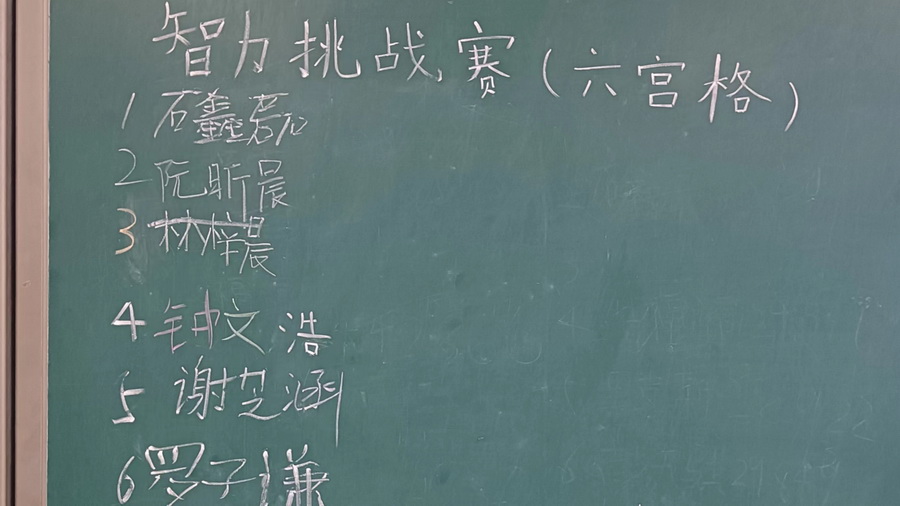 智力挑战赛（六宫格）
1 石鑫磊
2 阮昕晨
3 林梓晨
4 钟文浩
5 谢芝涵
6 罗子谦